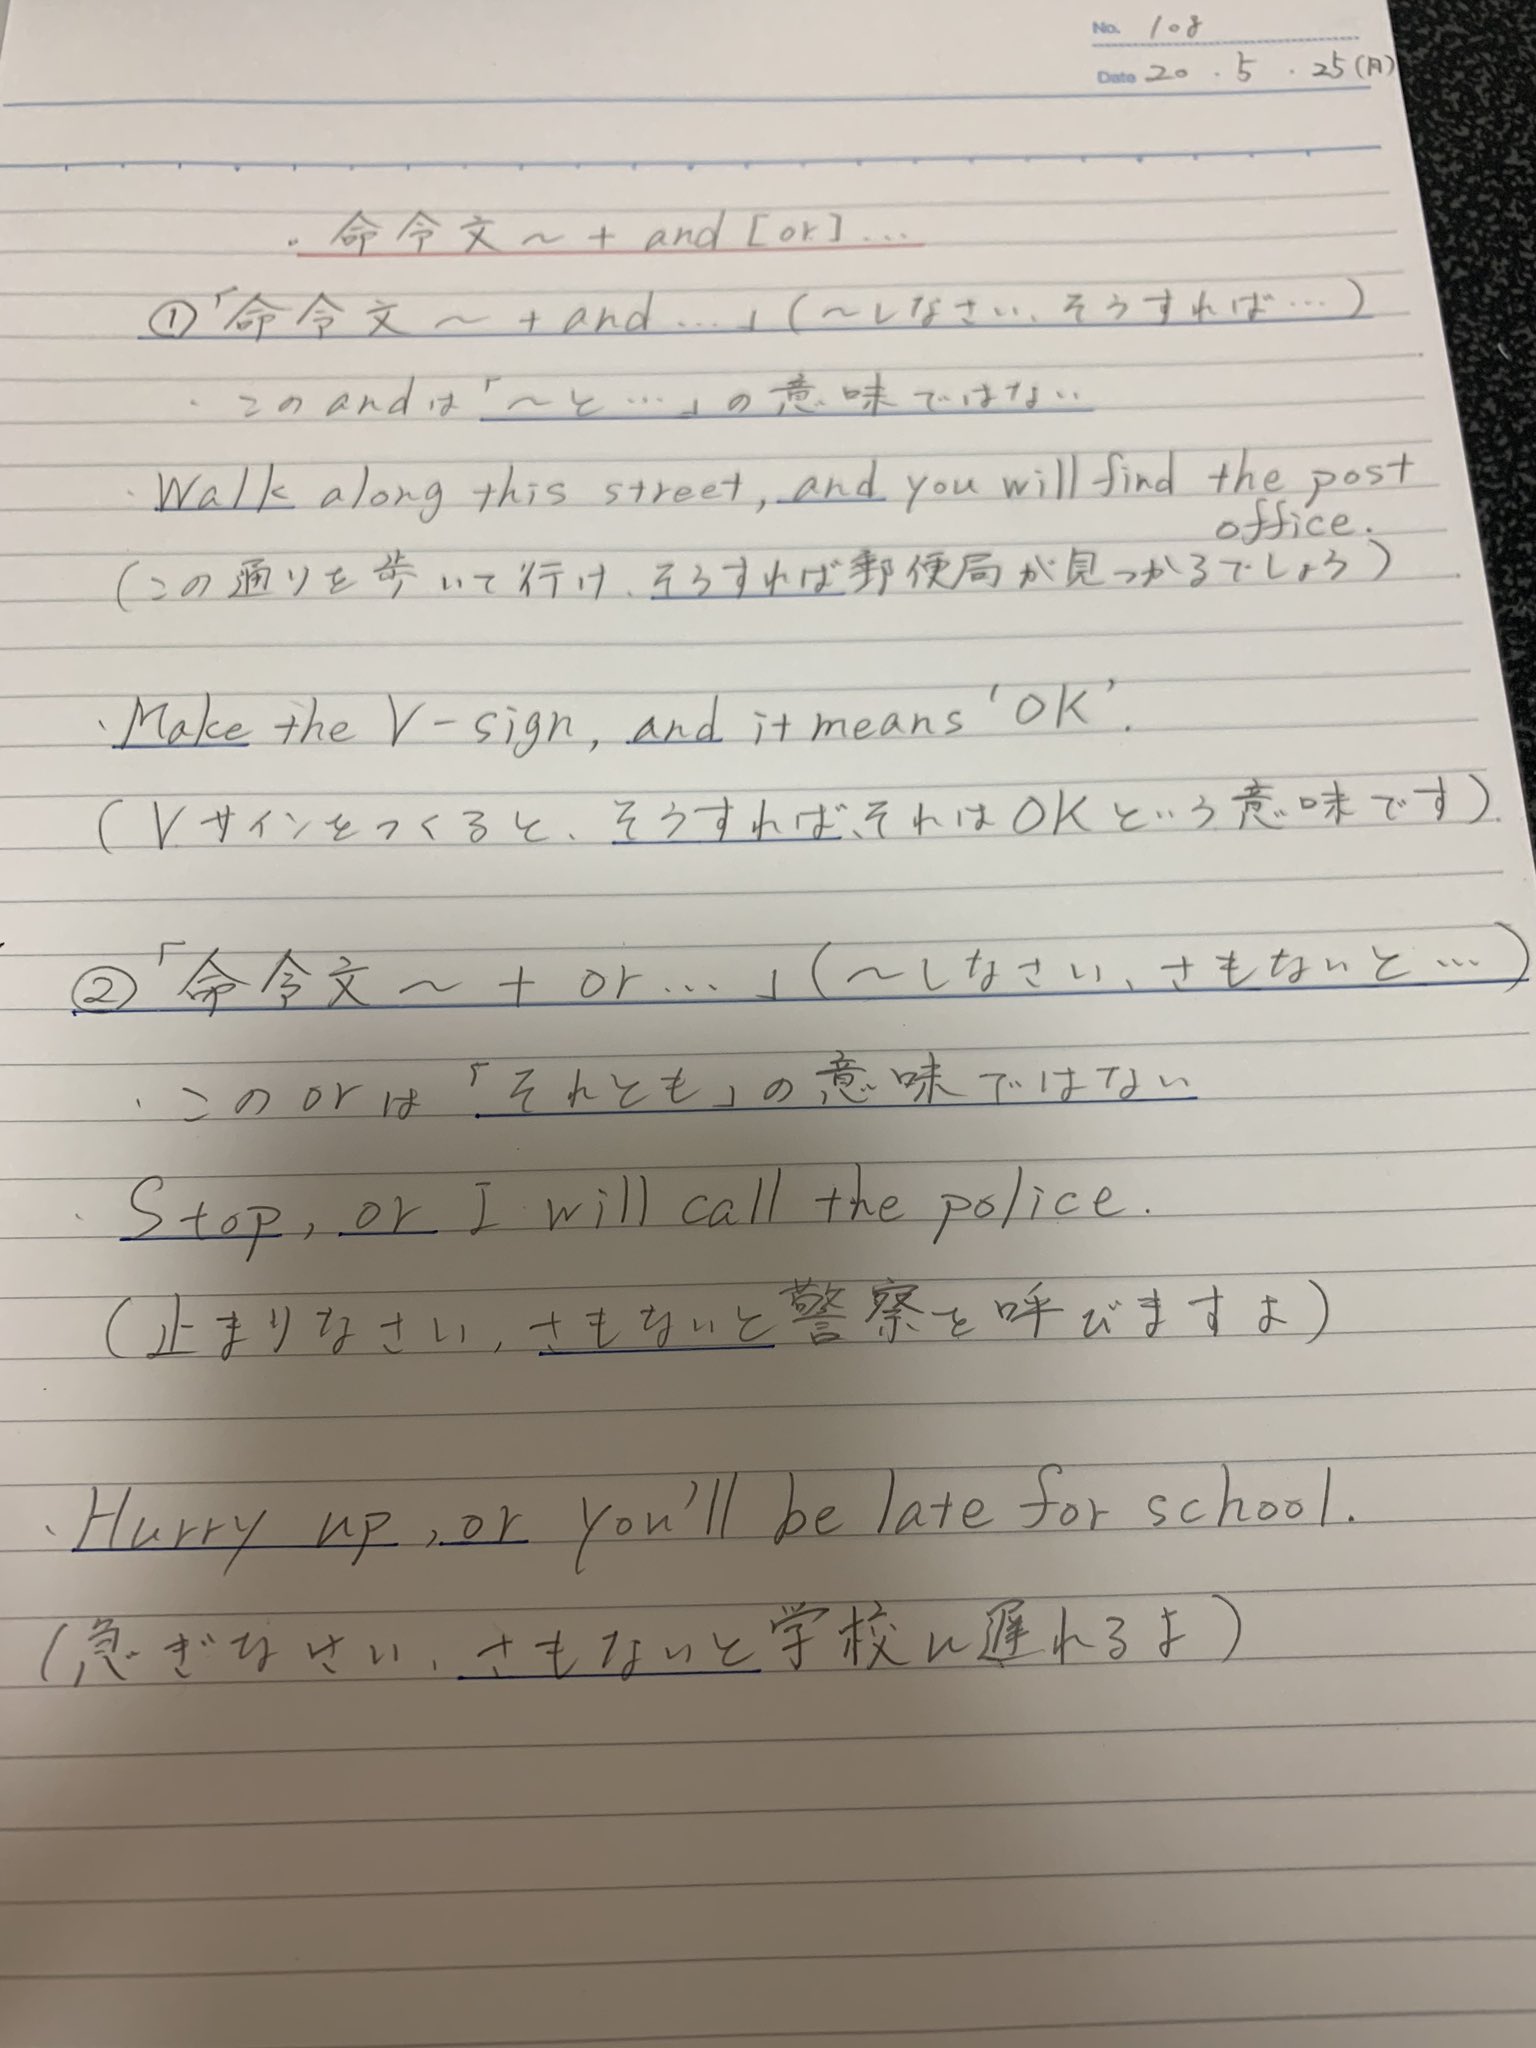 No. 108
Date 20 ・ 5 ・ 25(月)
・命令文～+ and [or]…
①「命令文～+ and…」(～しなさい、そうすれば…)
・このandは「～と…」の意味ではない
・Walk along this street, and you will find the post
office.
(この通りを歩いて行け、そうすれば郵便局が見つかるでしょう)
・Make the V-sign, and it means 'OK'.
(Vサインをつくると、そうすれば、それはOKという意味です)
②「命令文～+ or…」(～しなさい、さもないと…)
・このorは「それとも」の意味ではない
・Stop, or I will call the police.
(止まりなさい、さもないと警察を呼びますよ)
・Hurry up, or you'll be late for school.
(急ぎなさい、さもないと学校に遅れるよ)